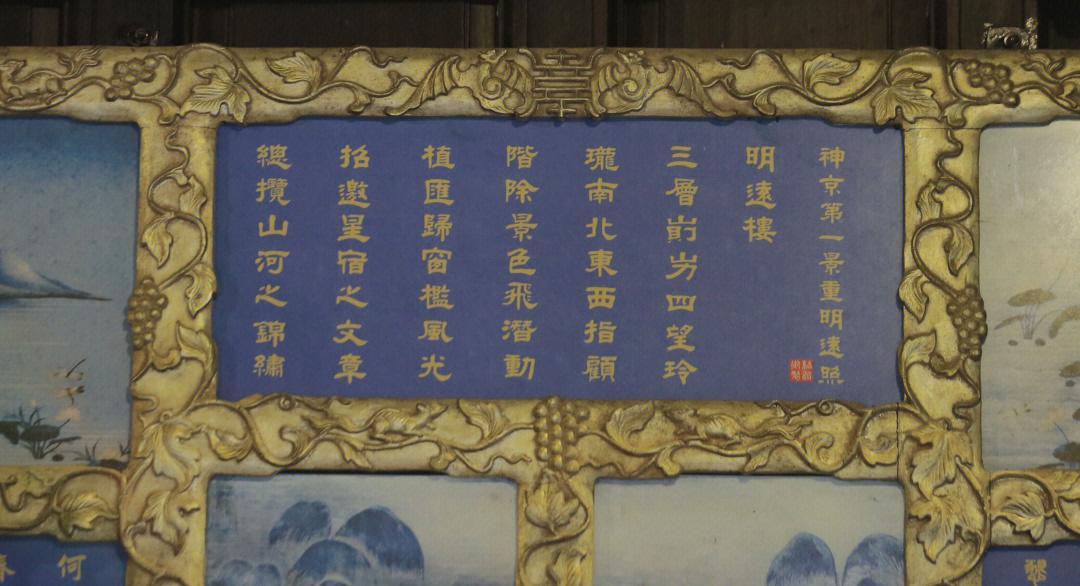 神京第一景重明遠照
明遠樓
三層崱屴四望玲
瓏南北東西指顧
階除景色飛潛動
植匯歸窗檻風光
招邀星宿之文章
總攬山河之錦繡
何